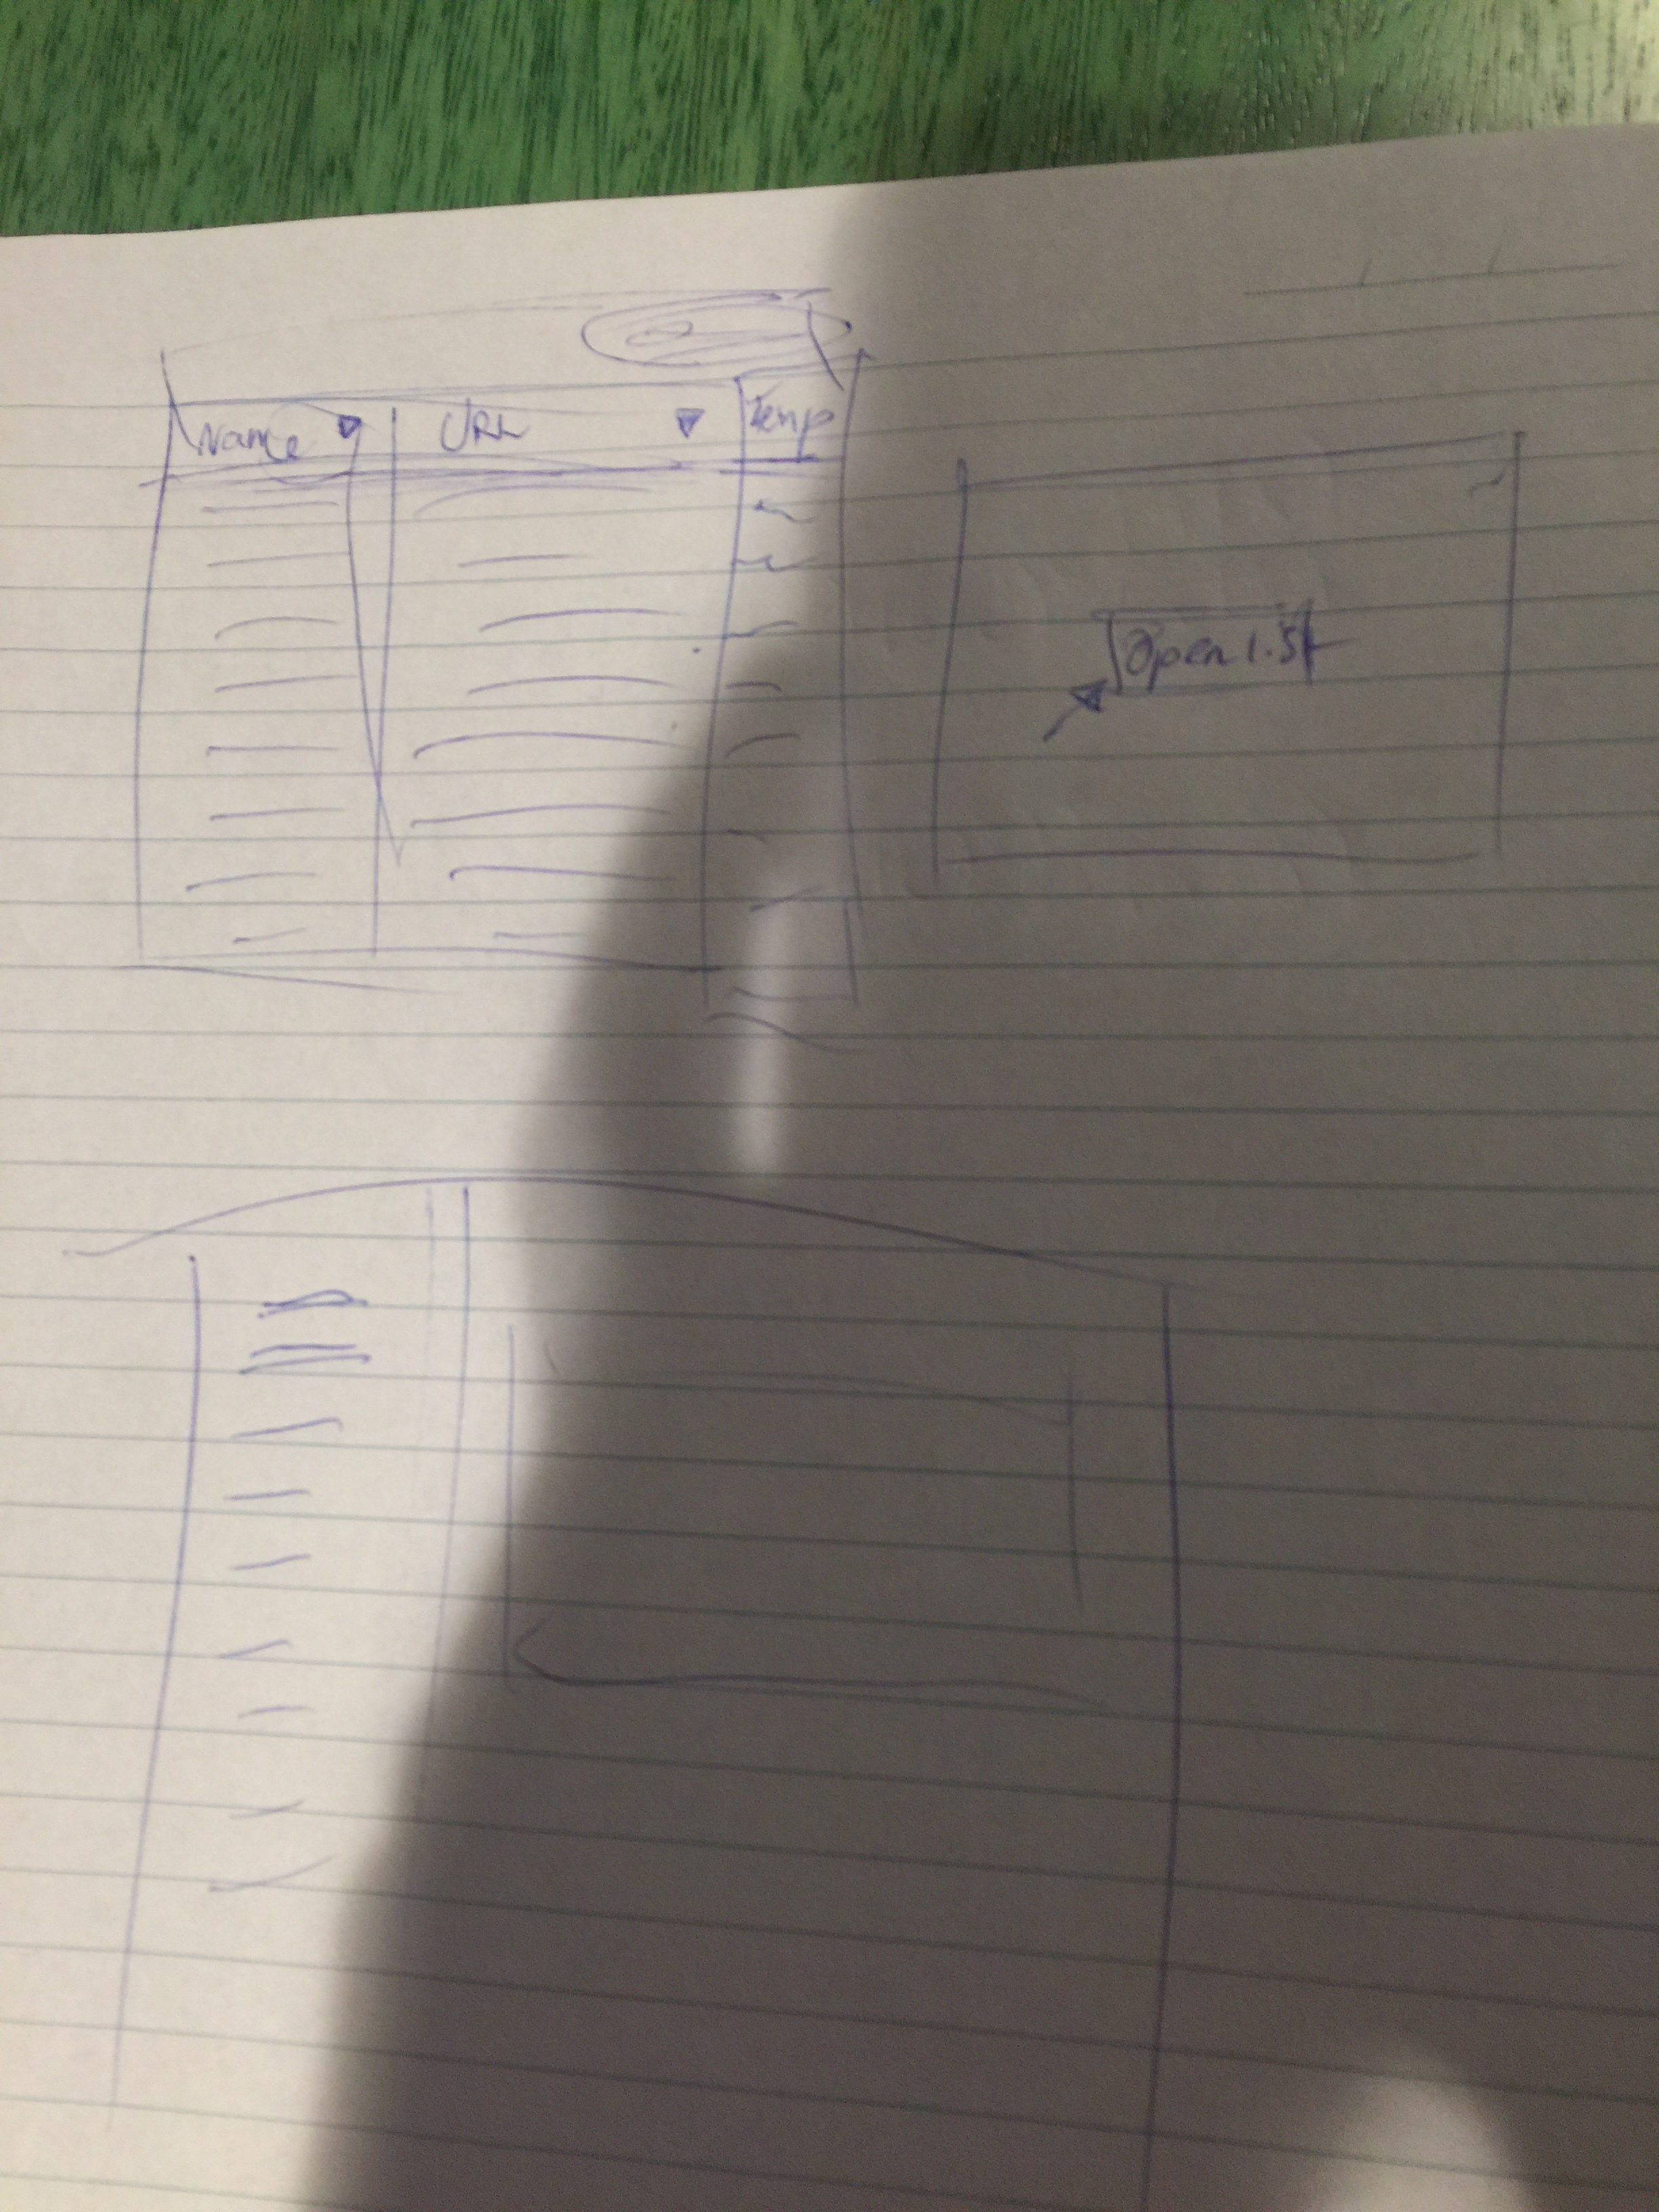 Name URL Temp
Open list